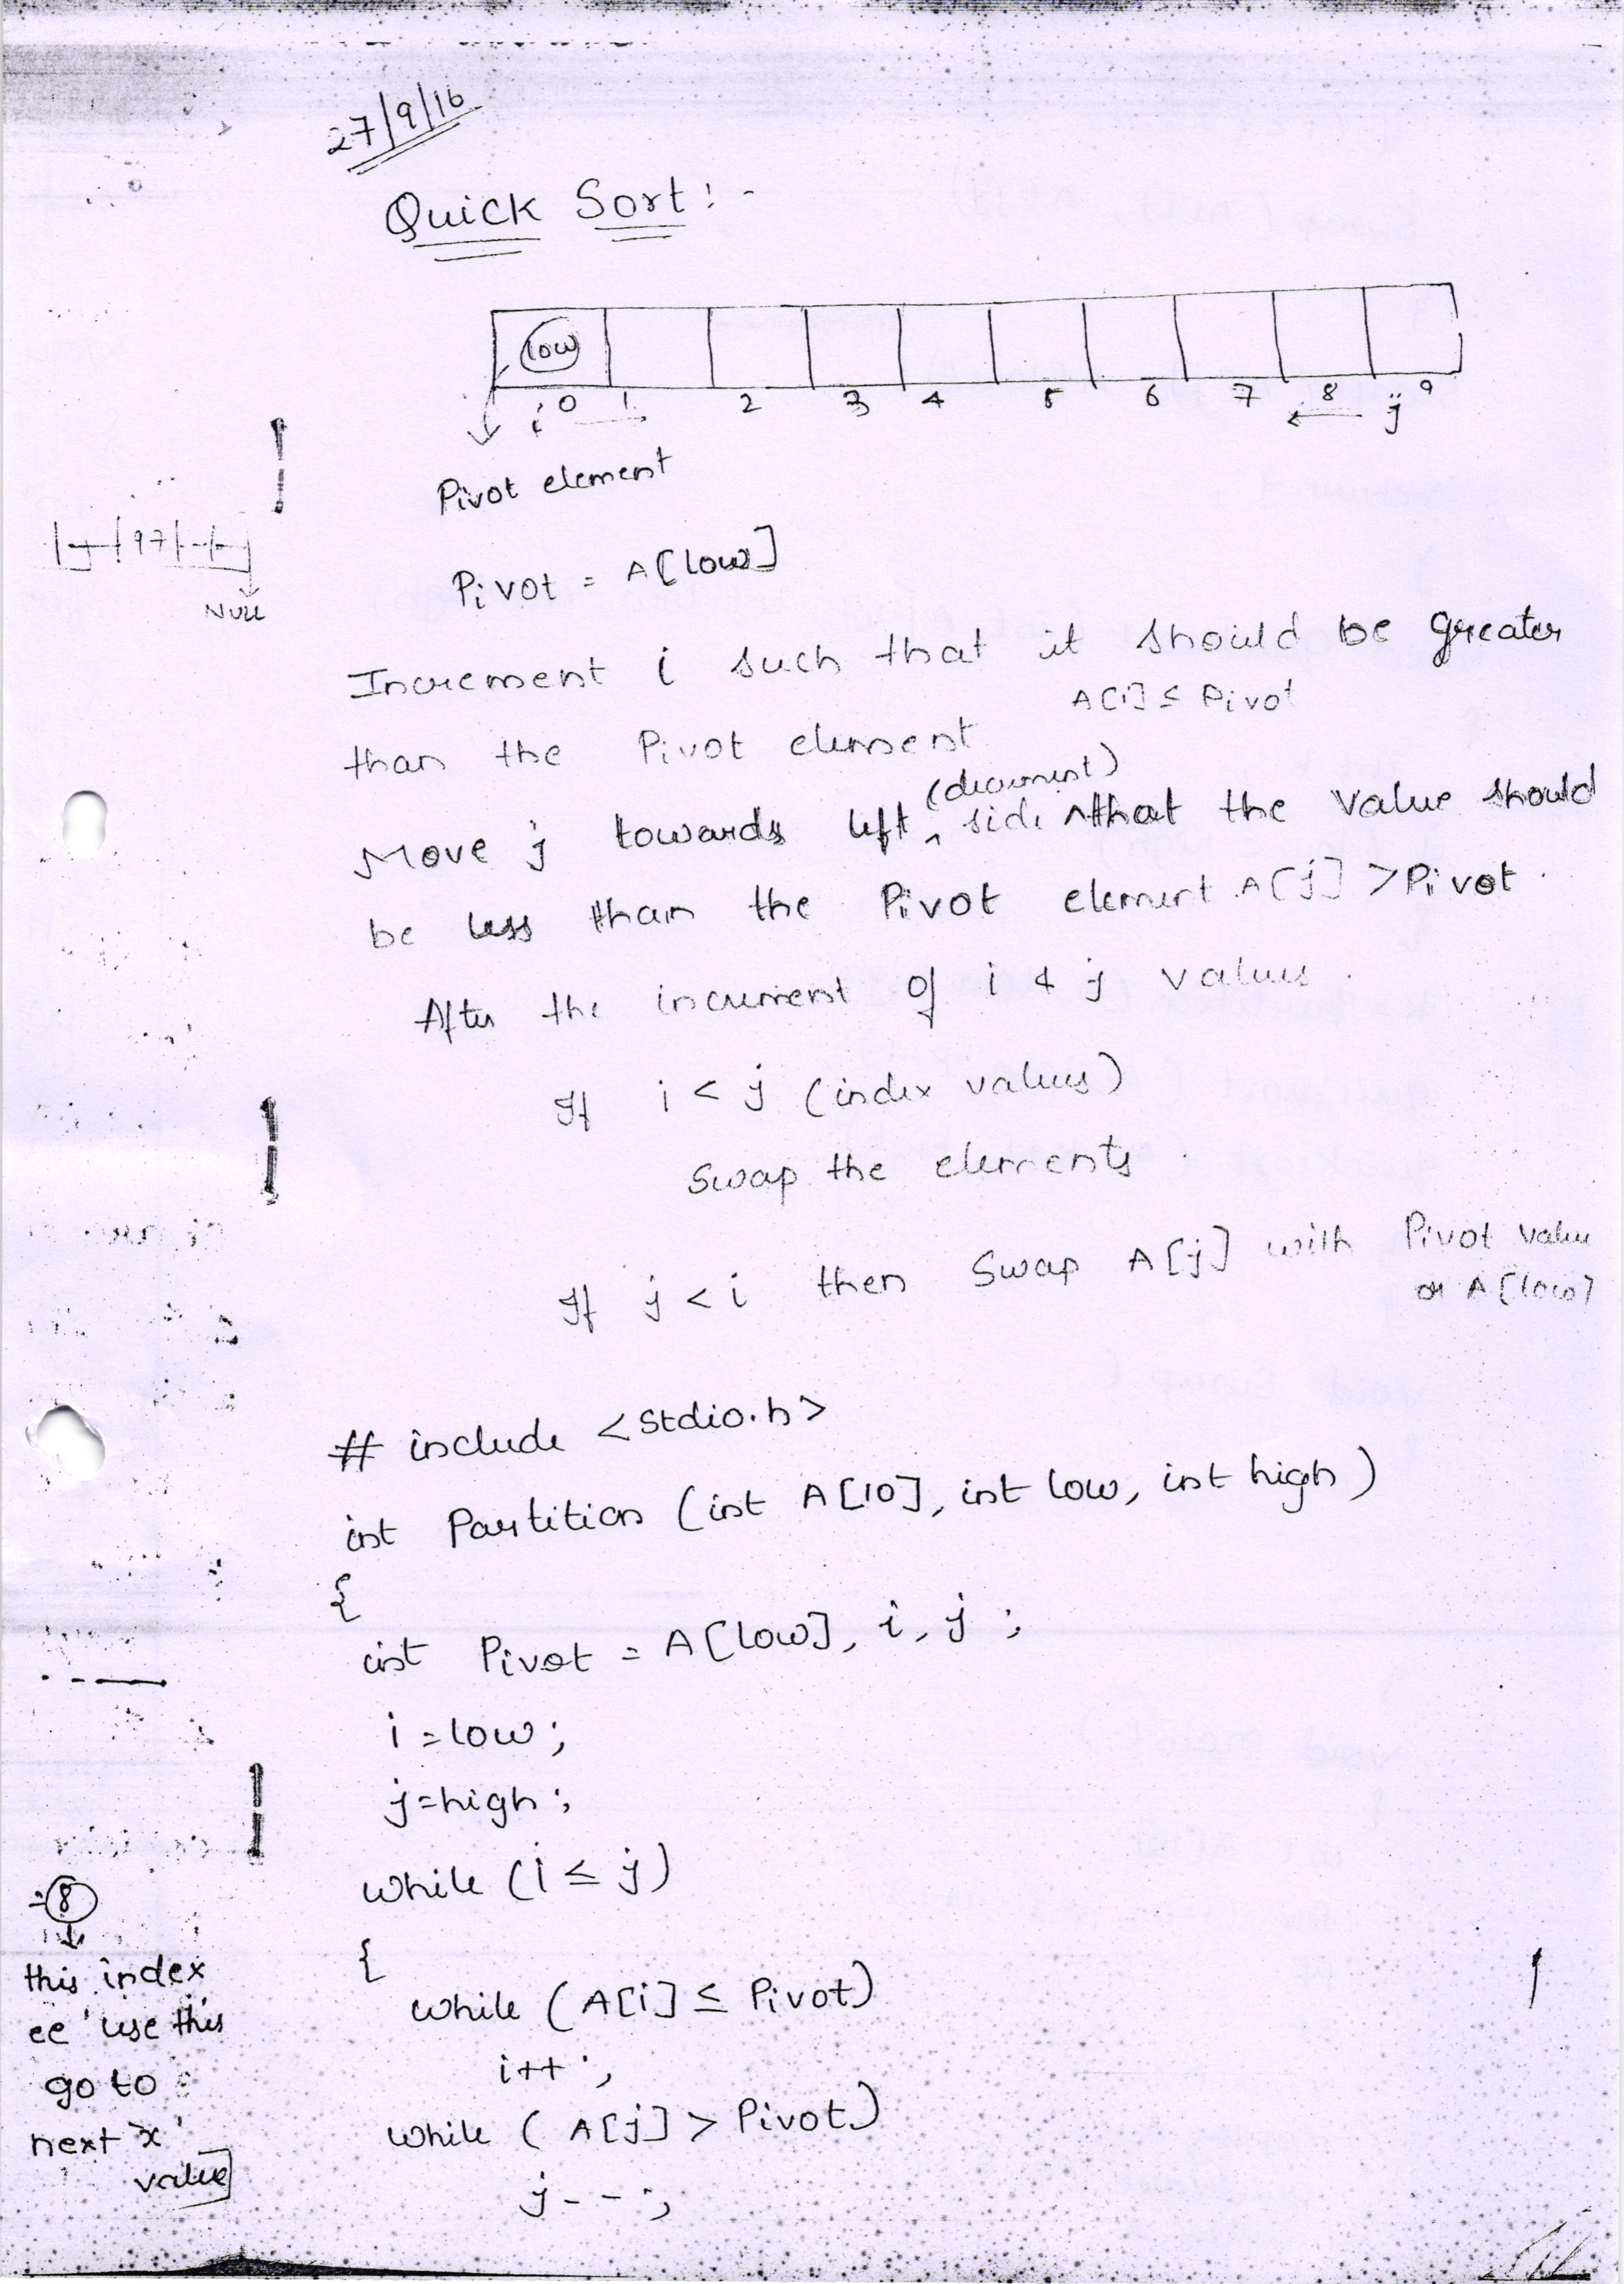 27/9/16
Quick Sort:-
low
i 0 1 2 3 4 5 6 7 8 j 9
Pivot element
97
NULL
Pivot = A[low]
Increment i such that it should be greater
A[i] ≤ Pivot
than the Pivot element
(decrement)
Move j towards left ^ side that the value should
be less than the Pivot element A[j] > Pivot.
After the increment of i & j values.
If i < j (index values)
Swap the elements.
If j < i then Swap A[j] with Pivot value
or A[low]
# include <stdio.h>
int Partition (int A[10], int low, int high)
{
int Pivot = A[low], i, j ;
i = low ;
j = high ;
while (i ≤ j)
{
while (A[i] ≤ Pivot)
i++ ;
while ( A[j] > Pivot)
j-- ;
8
this index
ee 'use this
go to
next 'x'
value